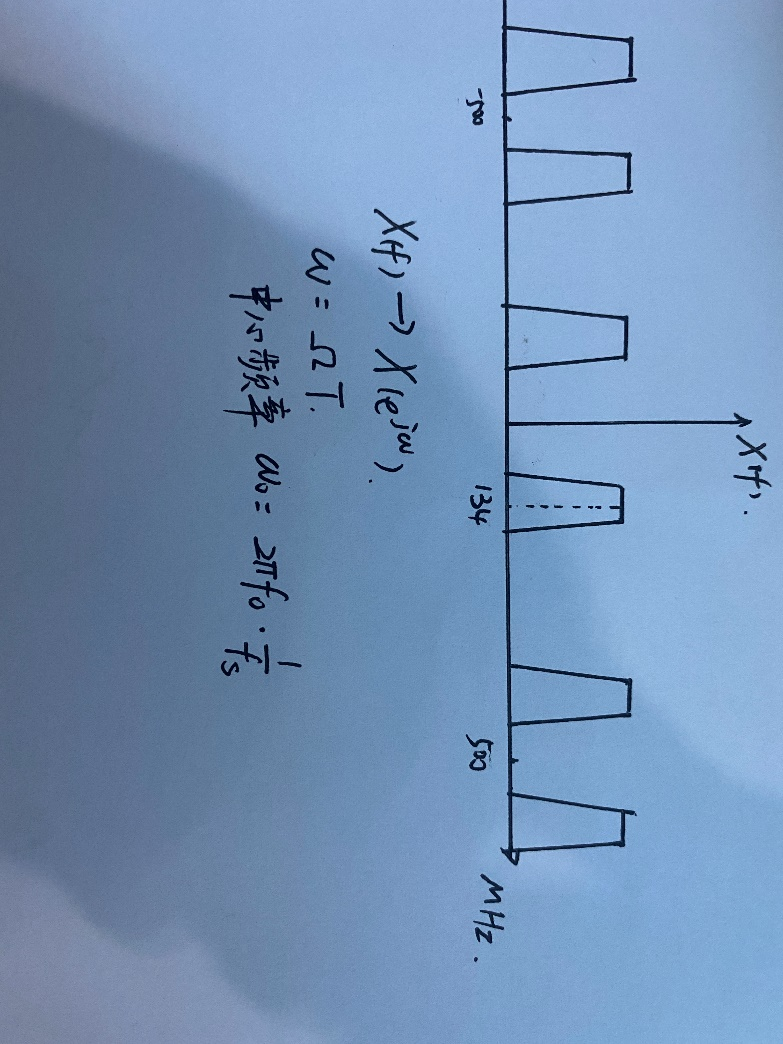 X(f).
-500
134
500
MHz.
X(f) → X(e^jω).
ω = ΩT.
中心频率 ω₀ = 2πf₀ · 1/fs